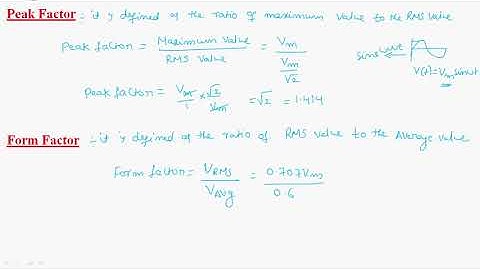 Peak Factor :- it is defined as the ratio of maximum value to the RMS value
Peak factor = Maximum value / RMS value = Vm / Vm/√2
sine wave
V(t)=Vm sinωt
Peak factor = Vm/1 × √2/Vm = √2 = 1.414
Form Factor :- it is defined as the ratio of RMS value to the Average value
Form factor = VRMS / VAvg = 0.707Vm / 0.6